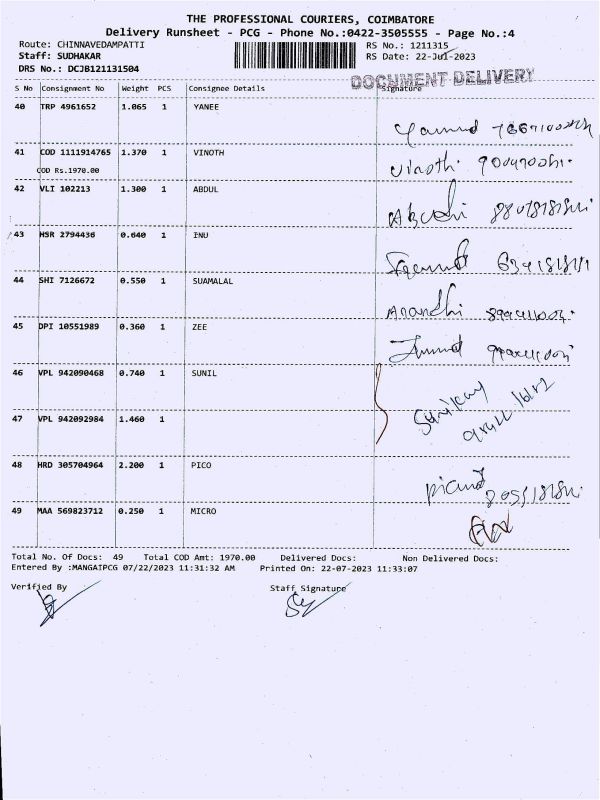 THE PROFESSIONAL COURIERS, COIMBATORE
Delivery Runsheet - PCG - Phone No.:0422-3505555 - Page No.:4
Route: CHINNAVEDAMPATTI RS No.: 1211315
Staff: SUDHAKAR RS Date: 22-Jul-2023
DRS No.: DCJB121131504
DOCUMENT DELIVERY
S No Consignment No Weight PCS Consignee Details Signature
40 TRP 4961652 1.065 1 YANEE
41 COD 1111914765 1.370 1 VINOTH Vinoth.
COD Rs.1970.00
42 VLI 102213 1.300 1 ABDUL
43 HSR 2794436 0.640 1 INU
44 SHI 7126672 0.550 1 SUAMALAL Anandhi
45 DPI 10551989 0.360 1 ZEE
46 VPL 942090468 0.740 1 SUNIL
47 VPL 942092984 1.460 1
48 HRD 305704964 2.200 1 PICO
49 MAA 569823712 0.250 1 MICRO
Total No. Of Docs: 49 Total COD Amt: 1970.00 Delivered Docs: Non Delivered Docs:
Entered By :MANGAIPCG 07/22/2023 11:31:32 AM Printed On: 22-07-2023 11:33:07
Verified By Staff Signature